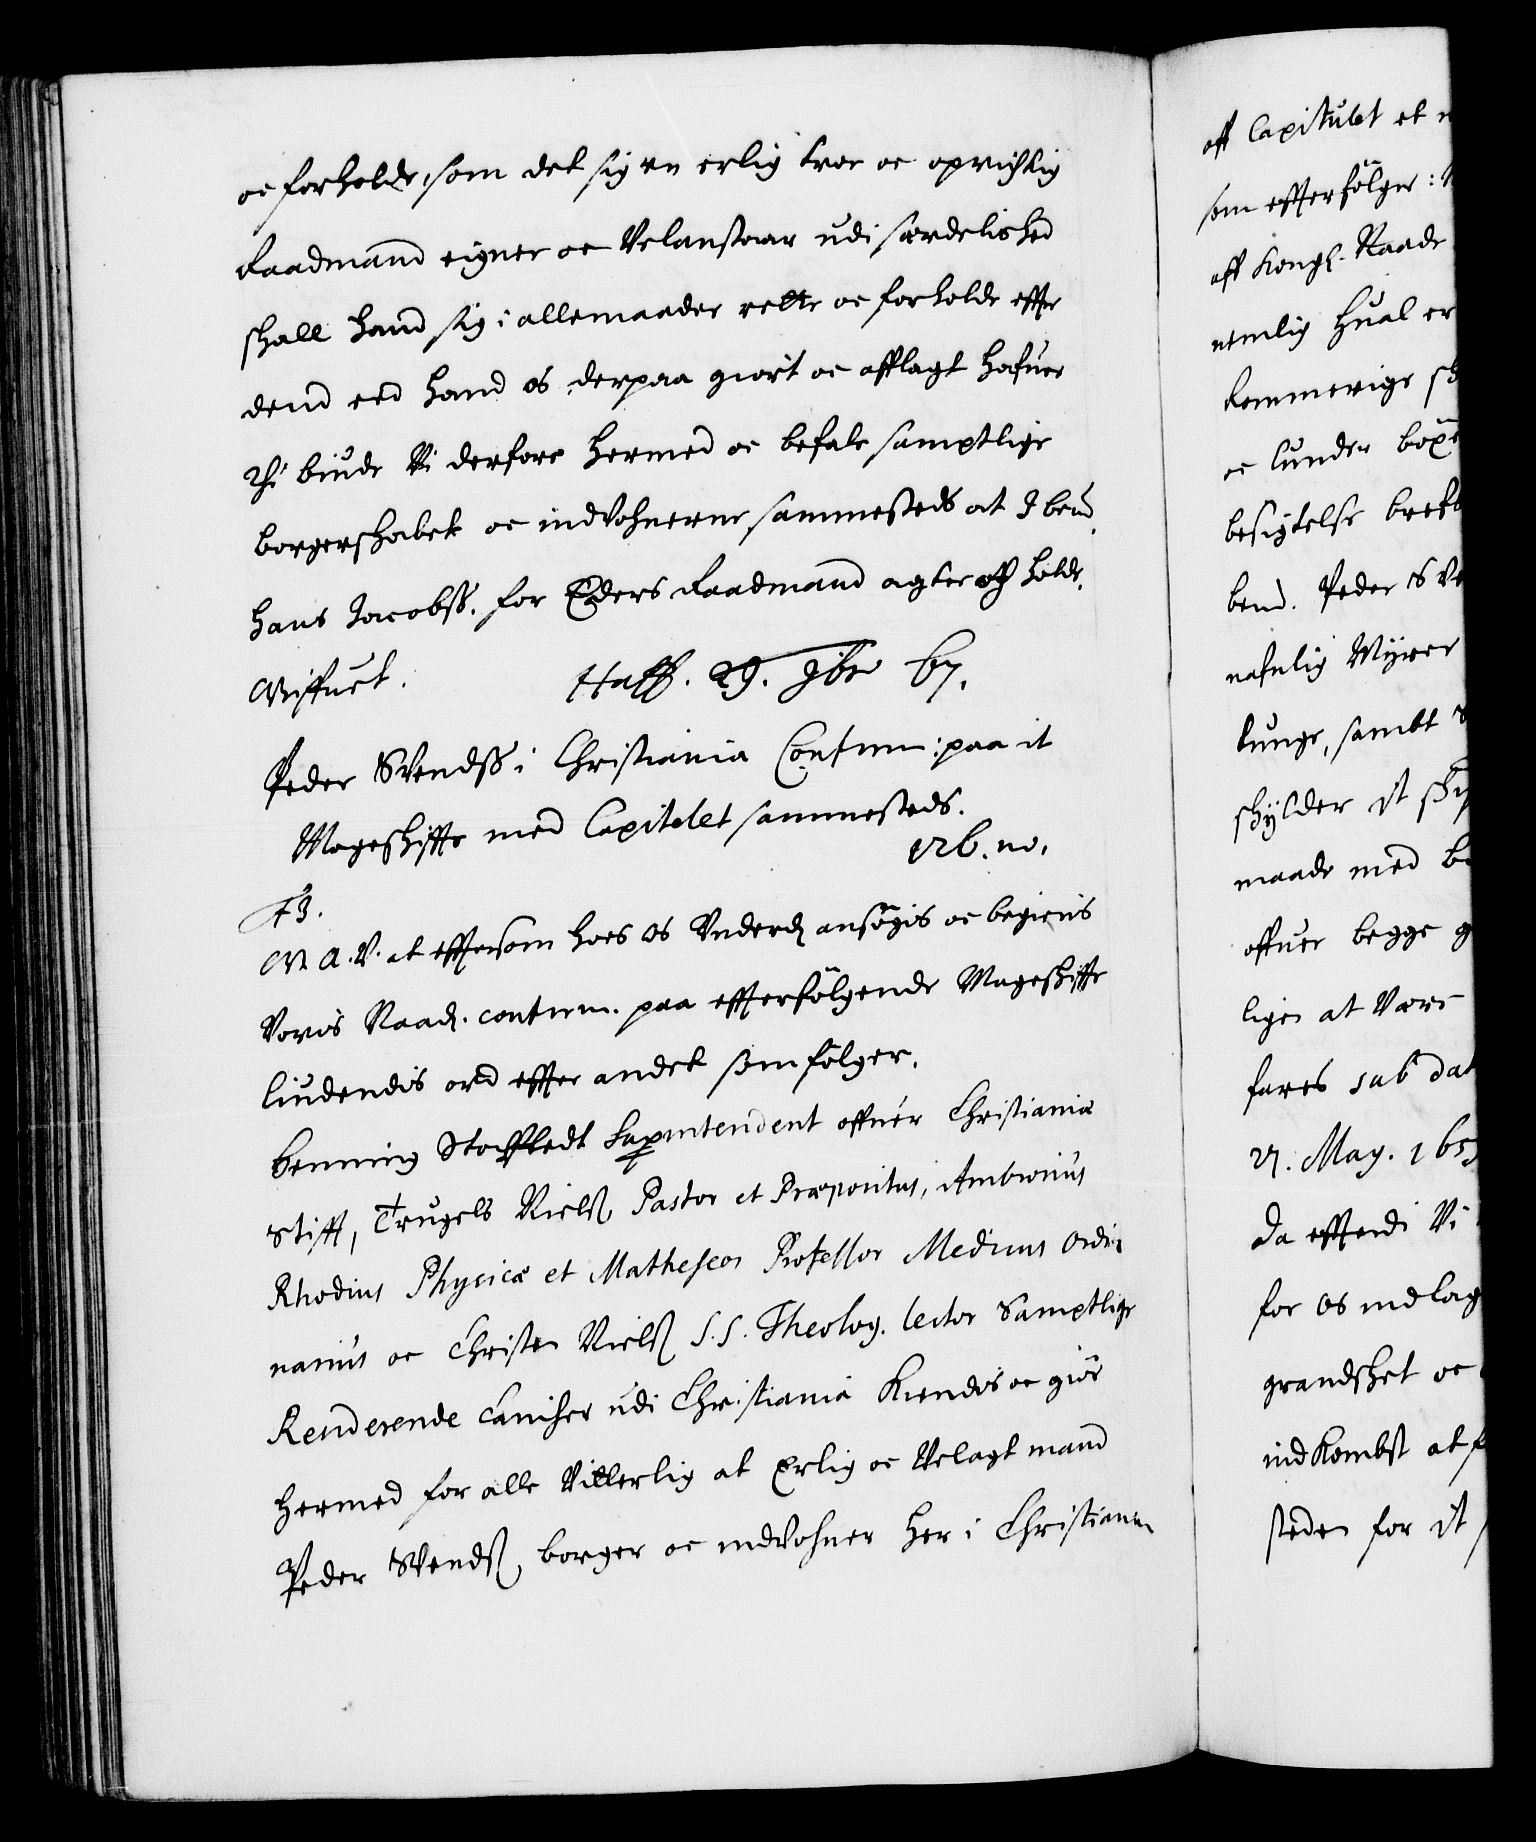 oc forholde, som det sig en erlig troe oc oprichtig
Raadmand eigner oc Velanstaar udi særdelished
skall hand sig i allemaader rette oc forholde effter
dend eed hand os derpaa giort oc afflagt hafuer
Thi biude Vi derfore hermed oc befale samptlige
borgerskabet oc indvohnerne sammesteds at I bem.
Hans Jacobss. for Eders Raadmand agter och holde.
Hafn. 29. 9br 57.
Peder Svendss i Christiania Confirm: paa it
Mageskiffte med Capitelet sammesteds.
F3.
at efftersom hoes os Underd. ansøgis oc begieris
Voris Naad. confirm. paa effterfølgende Mageskiffte
liudendis ord effter andet som følger.
Henning Stockfledt Superintendent offuer Christiania
Stifft, Trugels Nielss Pastor et Præpositus, Ambrosius
Rhodius Physicæ et Matheseos Professor Medicus Ordi-
narius oc Christen Nielss S.S. Theolog. lector Samptlige
Residerende Caniker udi Christiania Kiendis oc giør
hermed for alle Vitterlig at Erlig oc Velagt mand
Peder Svendss, borger oc indvohner her i Christiania
aff Capitulet et
som effterfølger:
aff Kongl. Naade
nemlig Hual
oc lunder
besigtelse
bem. Peder
nafnlig
lunge, sambt
skylder it
maade med
offuer begge
ligen at Være
fares sub dat
21. May. 165
Da efftterdi Vi
for os indlag
grandsket oc
indkombst at
steden for it